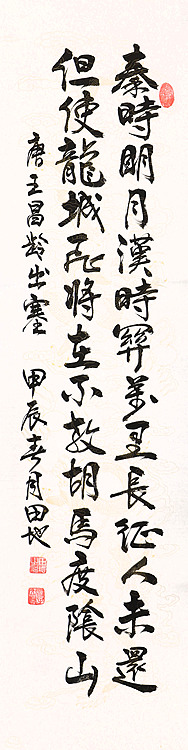 秦時明月漢時關萬里長征人未還
但使龍城飛將在不教胡馬度陰山
唐王昌齡出塞 甲辰春月田地